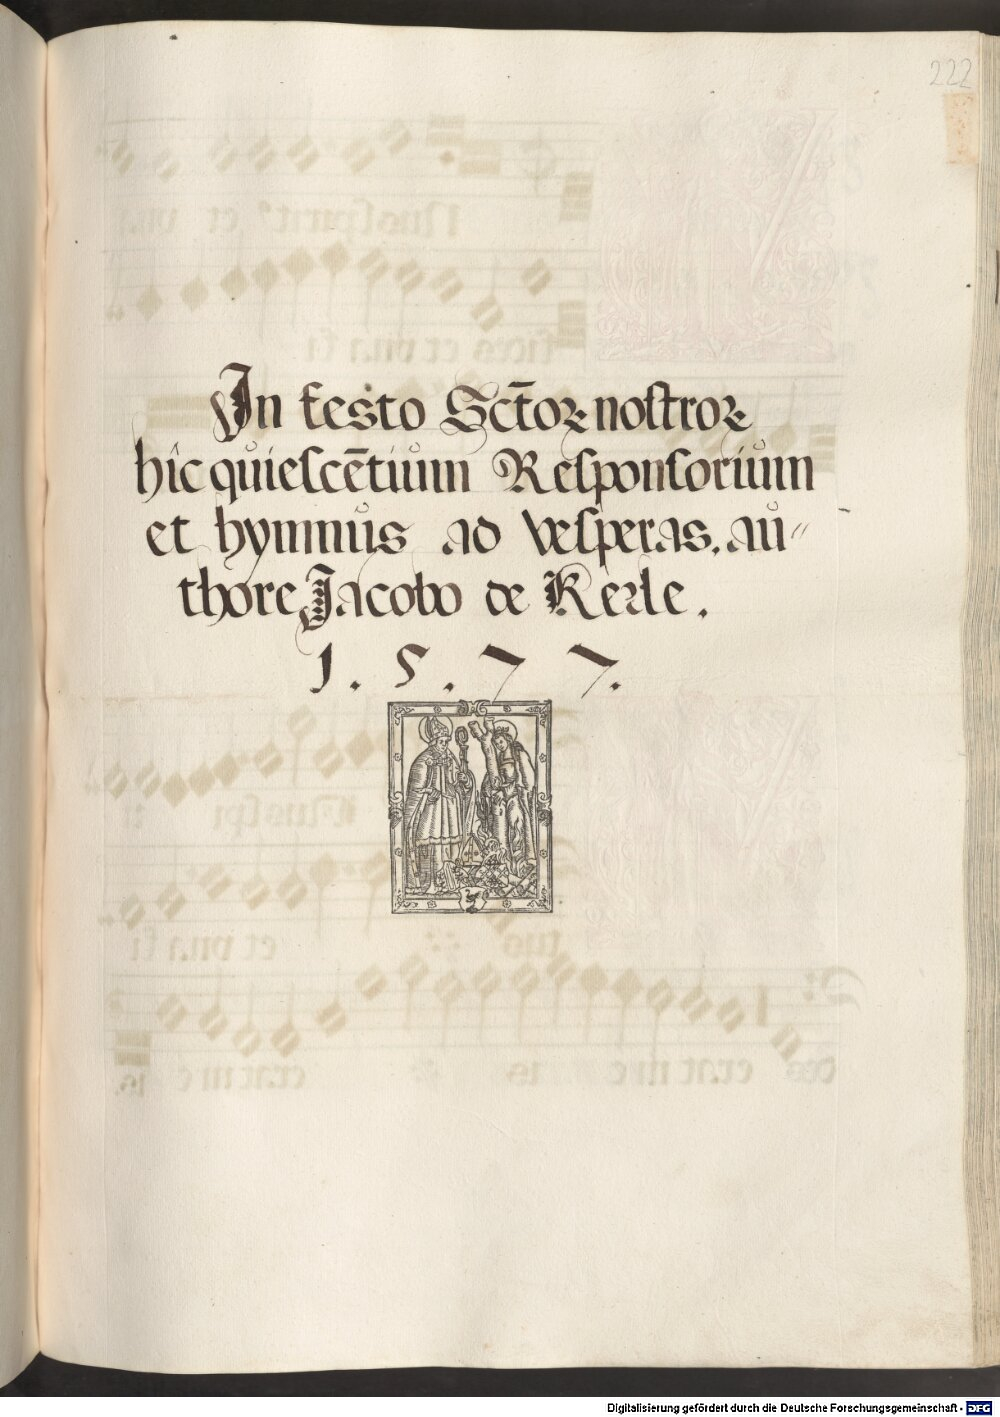 222
In festo Sct̄oꝝ nostroꝝ
hic quiescētium Responsorium
et hymnus ad vesperas. au⸗
thore Jacobo de Kerle.
1. 5. 7 7.
Digitalisierung gefördert durch die Deutsche Forschungsgemeinschaft - DFG